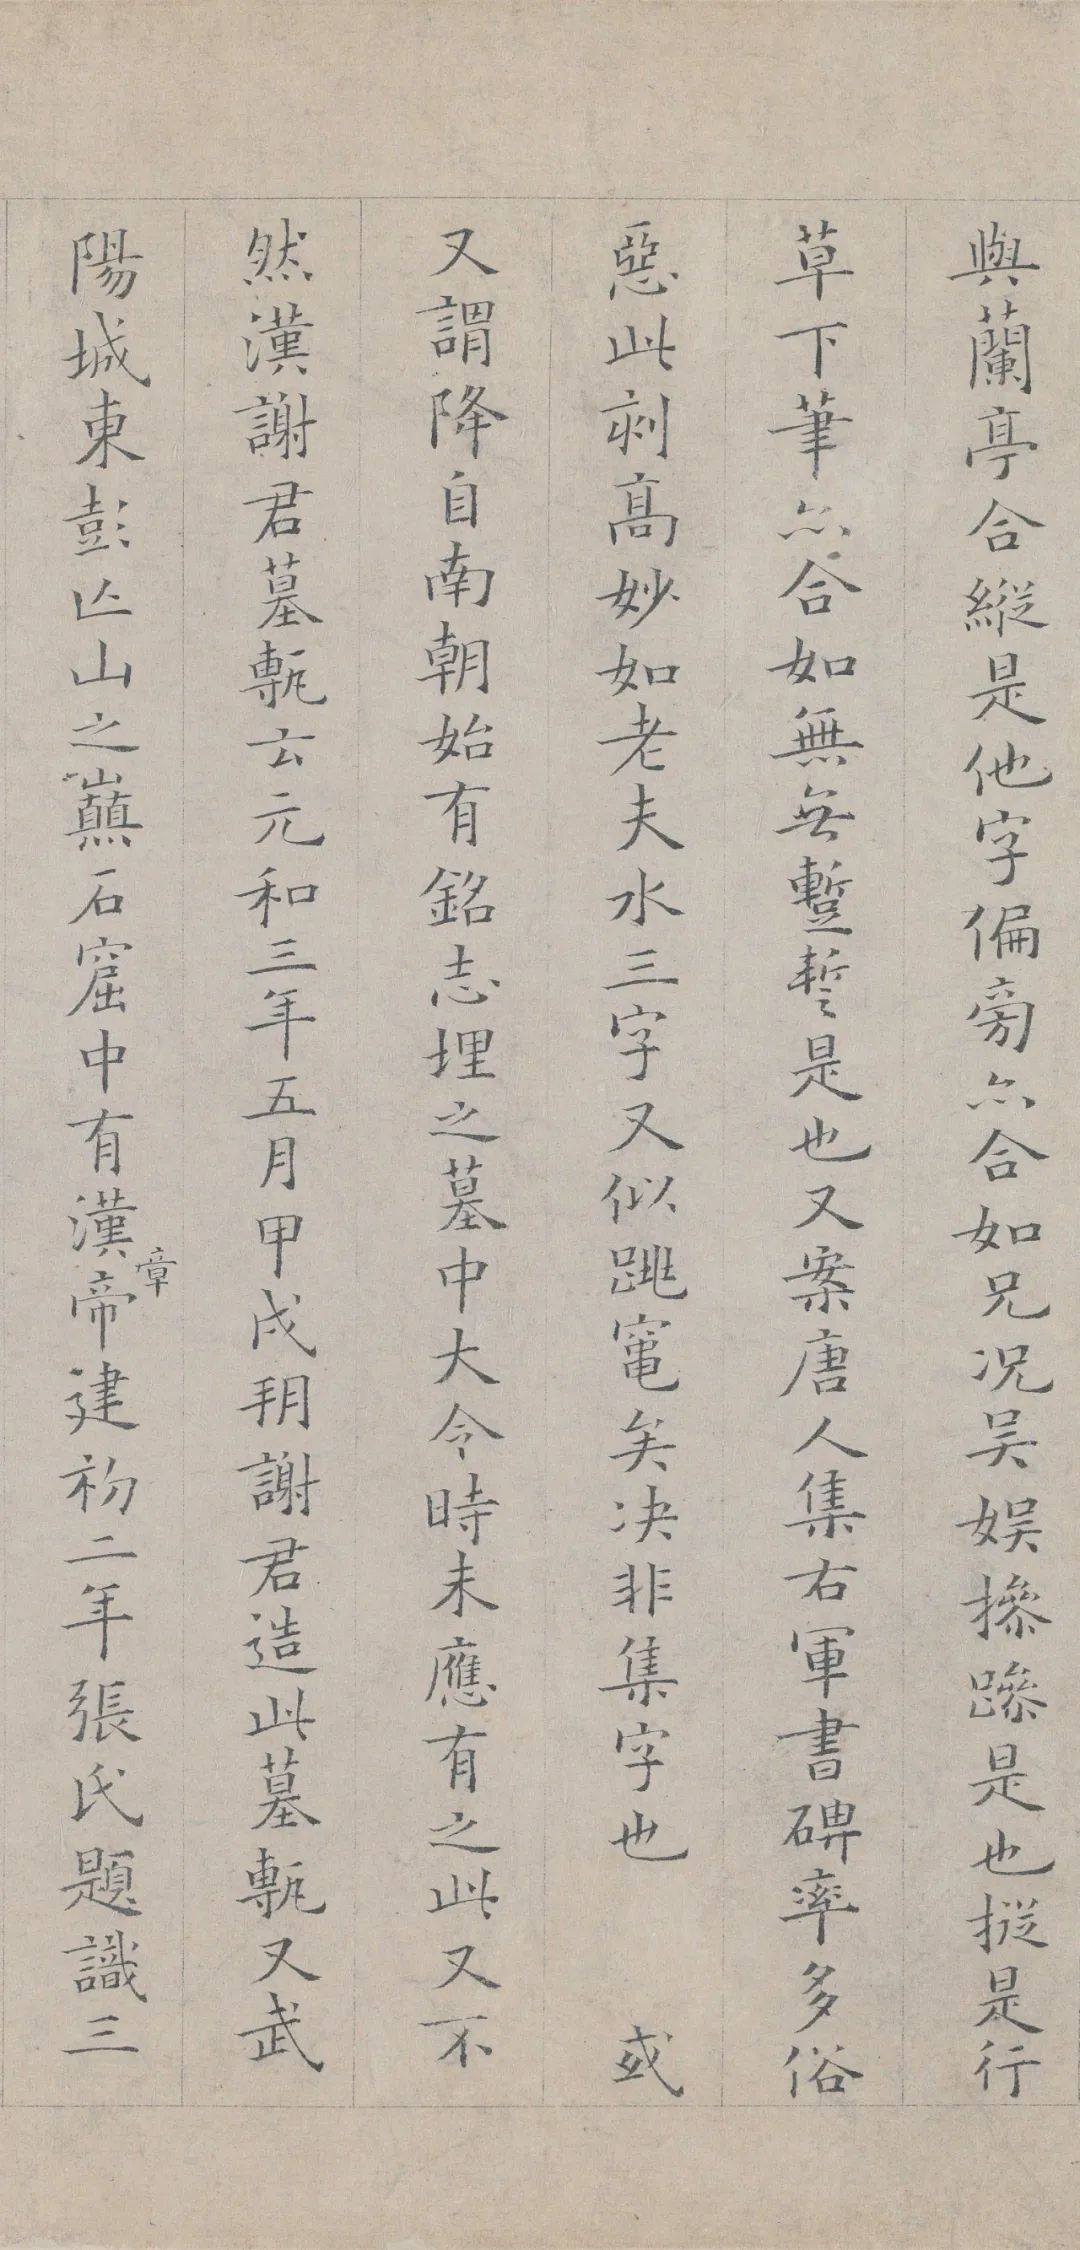 與蘭亭合縱是他字偏旁亦合如兄况吴娱摻蹂是也摐是行
草下筆亦合如無無蹔誓是也又案唐人集右軍書碑率多俗
惡此刻高妙如老夫水三字又似跳竃矣决非集字也　或
又謂降自南朝始有銘志埋之墓中大令時未應有之此又不
然漢謝君墓甎云元和三年五月甲戌朔謝君造此墓甎又武
陽城東彭亾山之巔石窟中有漢章帝建初二年張氏題識三